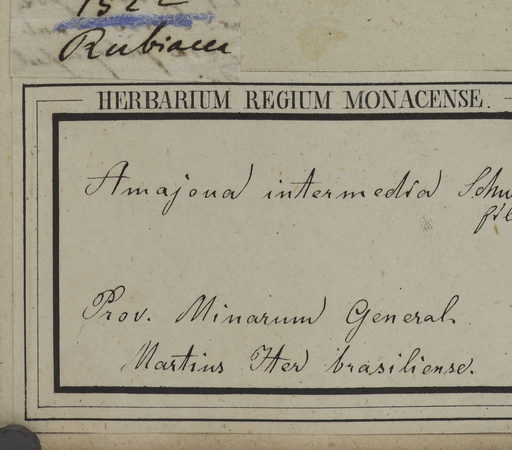 1522
Rubiacea
HERBARIUM REGIUM MONACENSE.
Amajoua intermedia Schu
fil
Prov. Minarum General.
Martius Iter brasiliense.